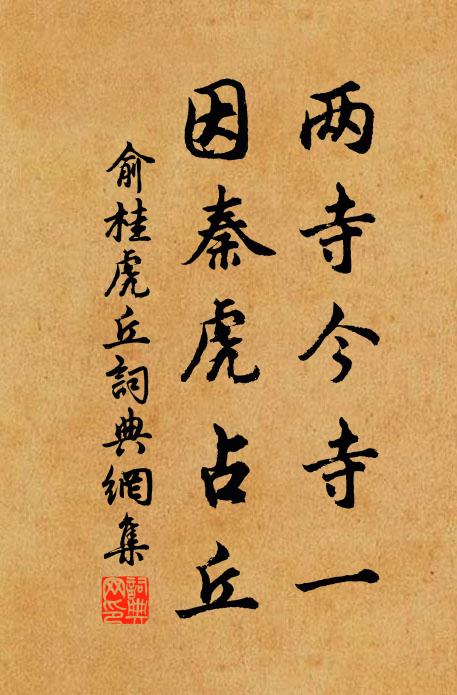 两寺今寺一
因秦虎占丘
俞桂虎丘詞典網集
詞典網印